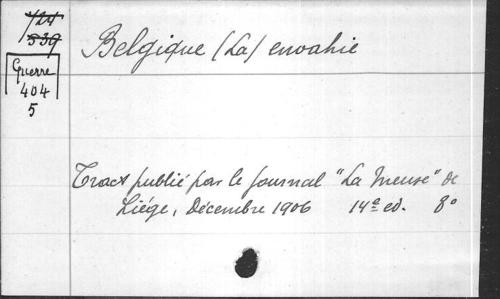 724
539
Guerre
404
5
Belgique (La) envahie
Tract publié par le journal "La Meuse" de
Liége, Décembre 1906 14e ed. 8°